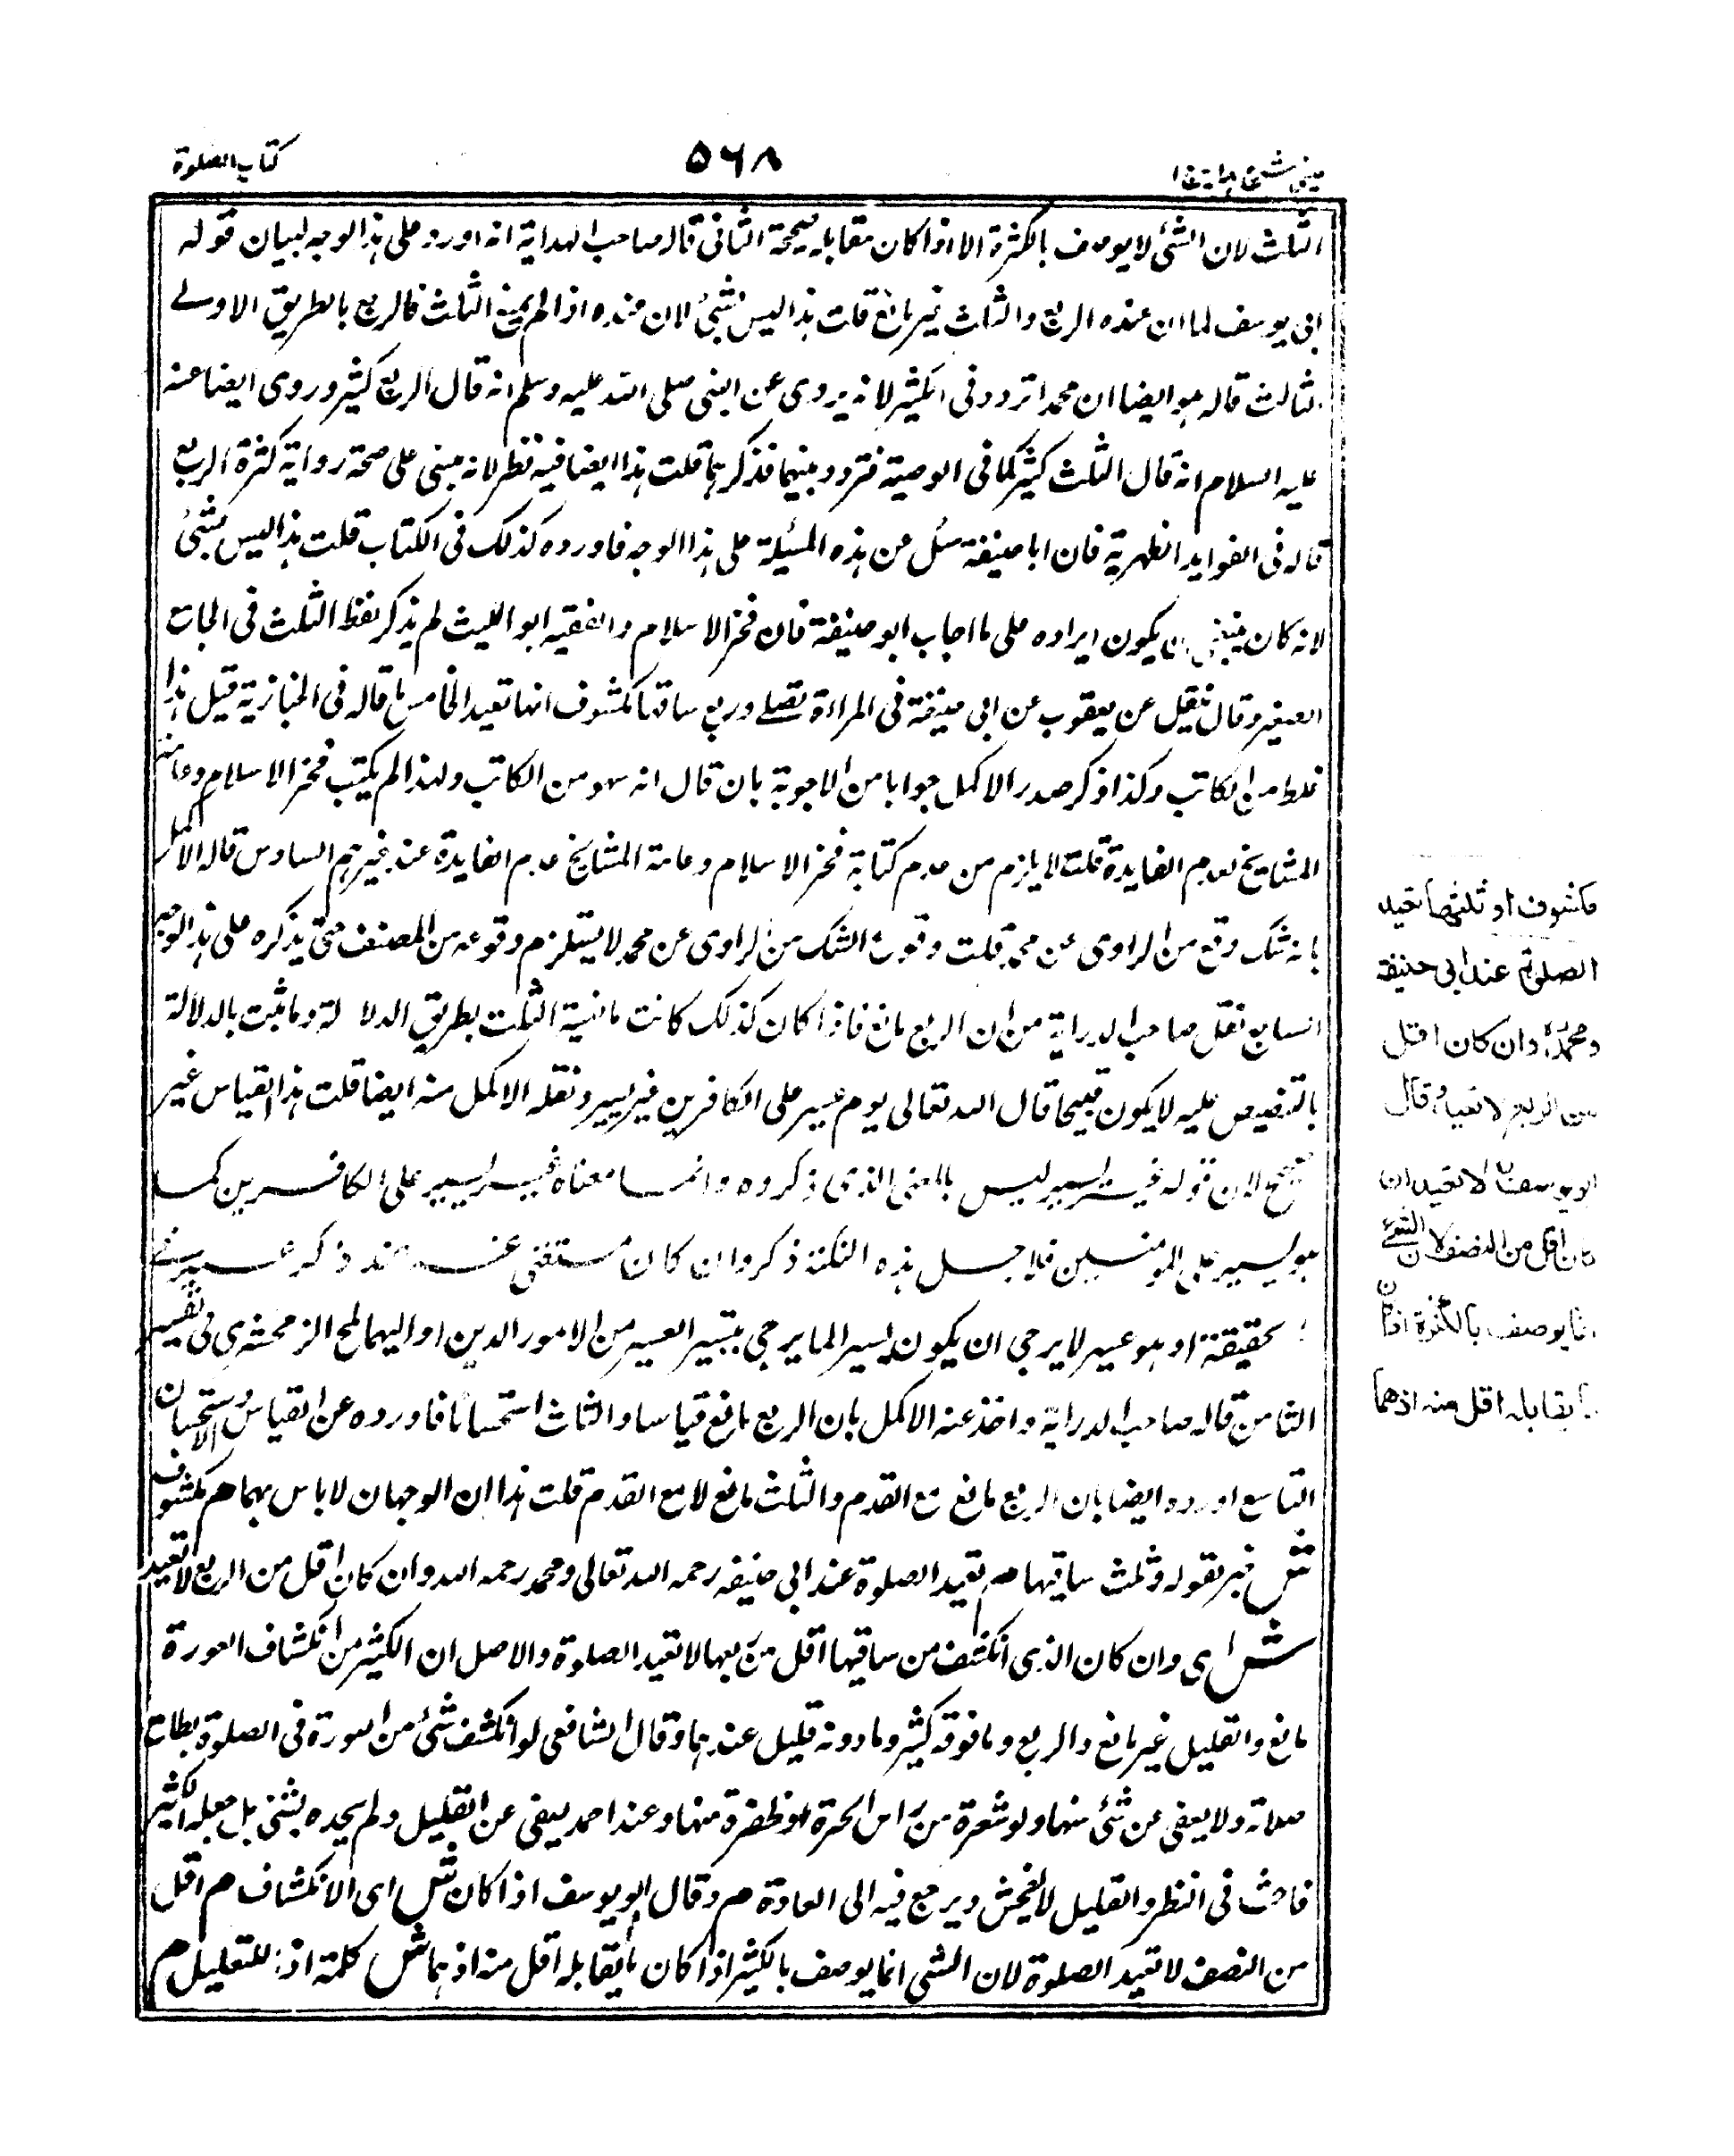 عینی شرح هدایة ج ١
٥٦٨
کتاب الصلوة
الثلث لان الشئ لا یوصف بالکثرة الا اذا کان مقابله الثانی قاله صاحب الهدایة انه اورد علی هذا الوجه لبیان قوله
ابی یوسف لما ان عنده الربع والثلث غیر مانع قلت هذا لیس بشئ لان عنده اذا لم یمنع الثلث فالربع بالطریق الاولے
الثالث قاله هو ایضا ان محمدا تردد فی الکثیر لانه یروی عن النبی صلی الله علیه وسلم انه قال الربع کثیر وروی ایضا عنه
علیه السلام انه قال الثلث کثیر کما فی الوصیة فتردد بینهما فذکرهما قلت هذا ایضا فیه نظر لانه مبنی علی صحة روایة کثرة الربع
قاله فی الفواید الظهریة فان ابا حنیفة سئل عن هذه المسئلة علی هذا الوجه فاورده کذلک فی الکتاب قلت هذا لیس بشئ
لانه کان ینبغی ان یکون ایراده علی ما اجاب ابو حنیفة فان فخر الاسلام والفقیه ابو اللیث لم یذکر لفظ الثلث فی الجامع
الصغیر وقال نقل عن یعقوب عن ابی حنیفة فی المراءة تصلے وربع ساقها مکشوف انها تعید الخامس ما قاله فی الخبازیة قیل هذا
غلط من الکاتب وکذا ذکر صدر الاکمل جوابا من الاجوبة بان قال انه سهو من الکاتب ولهذا لم یکتب فخر الاسلام وعامة
المشایخ لعدم الفایدة قلت لا یلزم من عدم کتابة فخر الاسلام وعامة المشایخ عدم الفایدة عند غیرهم السادس قاله الاکمل
بانه شک وقع من الراوی عن محمد قلت وقوع الشک من الراوی عن محمد لا یستلزم وقوعه من المصنف حتی یذکره علی هذا الوجه
السابع نقل صاحب الدرایة من ان الربع مانع فاذا کان کذلک کانت مانعیة الثلث بطریق الدلالة وما ثبت بالدلالة
بالتنصیص علیه لا یکون قبیحا قال الله تعالی یوم عسیر علی الکافرین غیر یسیر ونقله الاکمل منه ایضا قلت هذا القیاس غیر
صحیح لان قوله غیر یسیر لیس بالمعنی الذی ذکروه وانما معناه غیر یسیر علی الکافرین کما
هو یسیر علی المومنین فلاجل هذه النکتة ذکر وان کان مستغنی عنه عند ذکر عسیر
حقیقة او هو عسیر لا یرجی ان یکون یسیرا لما یرجی بتیسیر العسیر من الامور الدین او الیهما لمح الزمخشری فی تفسیره
الثامن قاله صاحب الدرایة واخذ عنه الاکمل بان الربع مانع قیاسا والثلث استحسانا فاورده عن القیاس والاستحسان
التاسع اورده ایضا بان الربع مانع مع القدم والثلث مانع لا مع القدم قلت هذا ان الوجهان لا باس بهما م مکشوف
ش خبر لقوله وثلث ساقیها م تعید الصلوة عند ابی حنیفه رحمه الله تعالی ومحمد رحمه الله وان کان اقل من الربع لا تعید
ش ای وان کان الذی انکشف من ساقیها اقل من ربعها لا تعید الصلوة والاصل ان الکثیر من انکشاف العورة
مانع والقلیل غیر مانع والربع وما فوقه کثیر وما دونه قلیل عندهما وقال الشافعی لو انکشف شئ من العورة فی الصلوة بطلت
صلاته ولا یعفی عن شئ منها ولو شعرة من راس الحرة او ظفرة منها وعند احمد یعفی عن القلیل ولم یحده بشئ بل جعله الکثیر
فاحش فی النظر والقلیل لا یفحش ویرجع فیه الی العادة م وقال ابو یوسف اذا کان ش ای الانکشاف م اقل
من النصف لا تعید الصلوة لان الشی انما یوصف بالکثیر اذا کان ما یقابله اقل منه اذ هما ش کلمة اذ للتعلیل م
مکشوف او ثلثها تعید
الصلوة عند ابی حنیفة
ومحمدؒ وان کان اقل
من الربع لا تعید وقال
ابو یوسفؒ لا تعید ان
کان اقل من النصف لان الشئ
انما یوصف بالکثرة اذا کان
ما یقابله اقل منه اذ هما